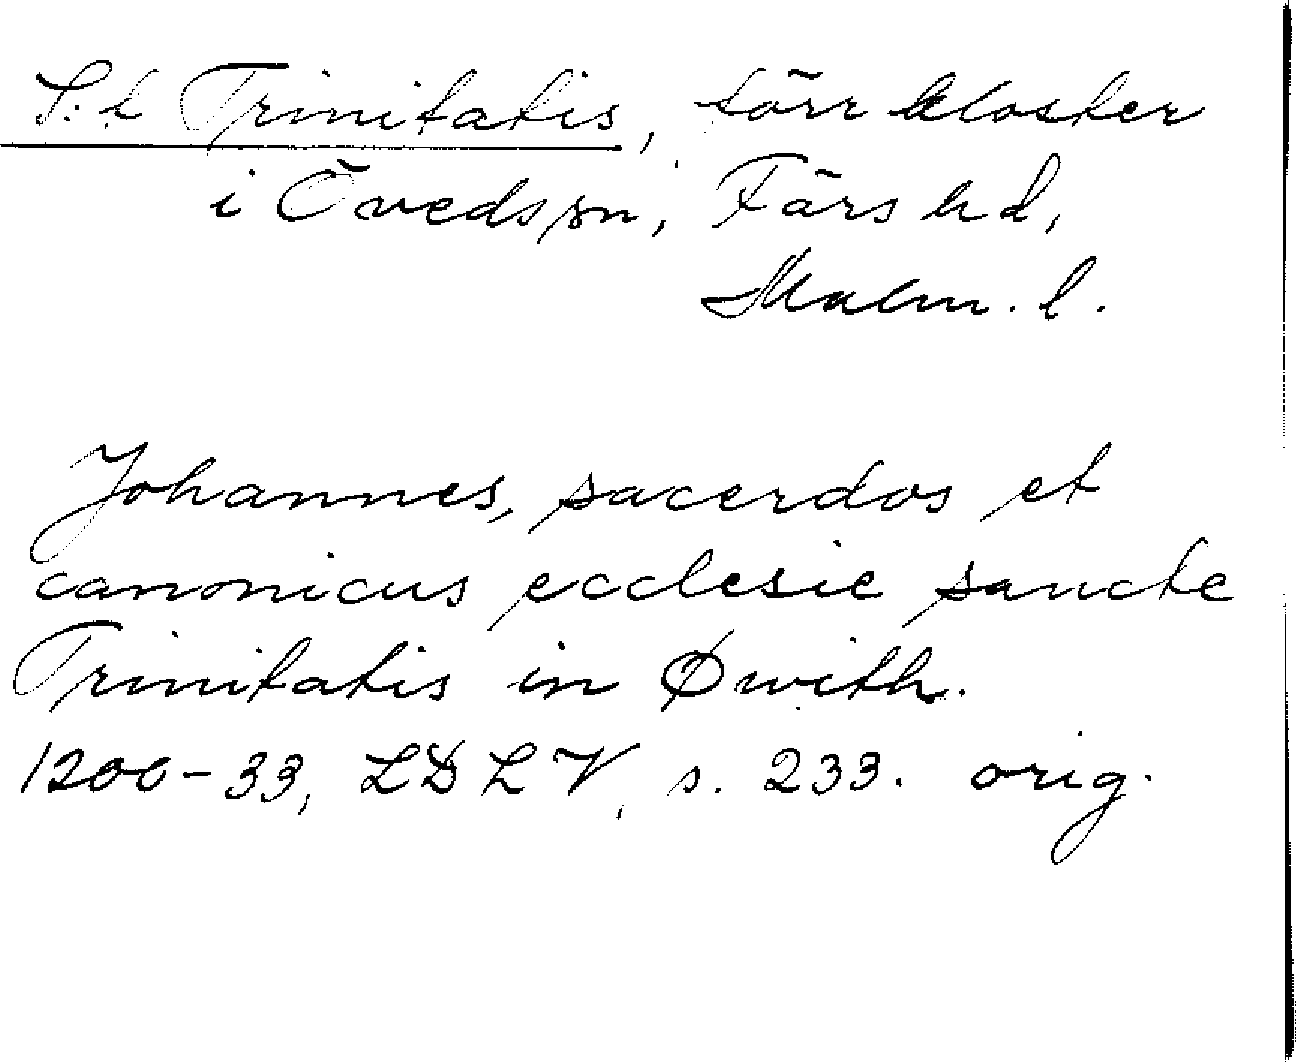 S:t Trinitatis, förr kloster
i Öveds sn, Färs hd,
Malm. l.
Johannes, sacerdos et
canonicus ecclesie sancte
Trinitatis in Øwith.
1200-33, LDLV, s. 233. orig.